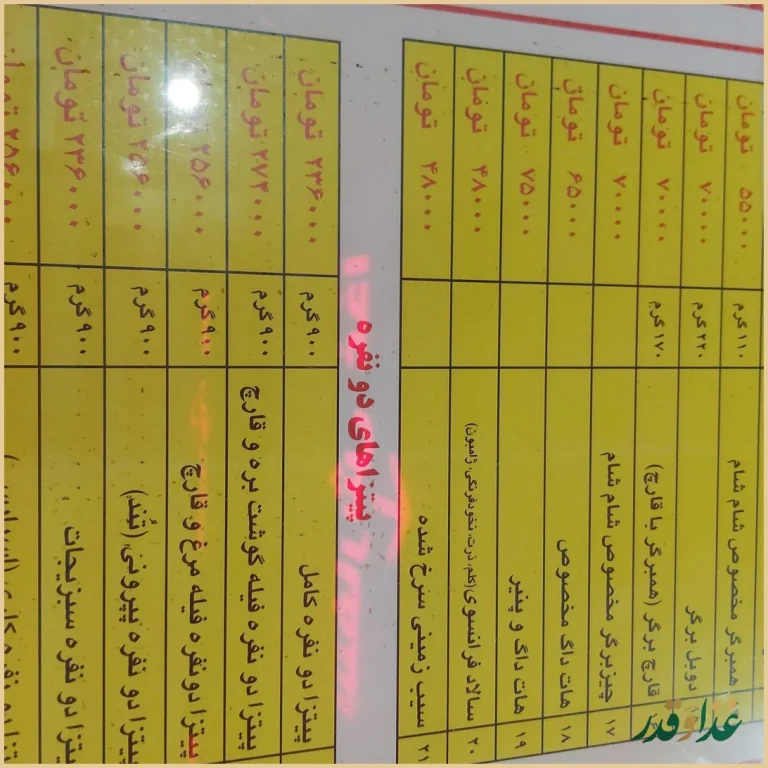 همبرگر مخصوص شام شام ۱۱۰گرم ۵۵۰۰۰ تومان
دوبل برگر ۲۲۰گرم ۷۰۰۰۰ تومان
قارچ برگر (همبرگر با قارچ) ۱۷۰گرم ۷۰۰۰۰ تومان
۱۷ چیزبرگر مخصوص شام شام ۷۰۰۰۰ تومان
۱۸ هات داگ مخصوص ۶۵۰۰۰ تومان
۱۹ هات داگ و پنیر ۷۵۰۰۰ تومان
۲۰ سالاد فرانسوی(کلم، ذرت، نخودفرنگی، ژامبون) ۴۸۰۰۰ تومان
۲۱ سیب زمینی سرخ شده ۴۸۰۰۰ تومان
پیتزاهای دو نفره
پیتزا دو نفره کامل ۹۰۰گرم ۲۳۶۰۰۰ تومان
پیتزا دو نفره فیله گوشت بره و قارچ ۹۰۰گرم ۲۷۲۰۰۰ تومان
پیتزا دونفره فیله مرغ و قارچ ۹۰۰گرم ۲۵۶۰۰۰
پیتزا دو نفره پپرونی (تُند) ۹۰۰گرم ۲۵۶۰۰۰ تومان
پیتزا دو نفره سبزیجات ۹۰۰گرم ۲۳۶۰۰۰ تومان
۹۰۰گرم ۲۸۶۰۰۰ تومان
غذا و قدر